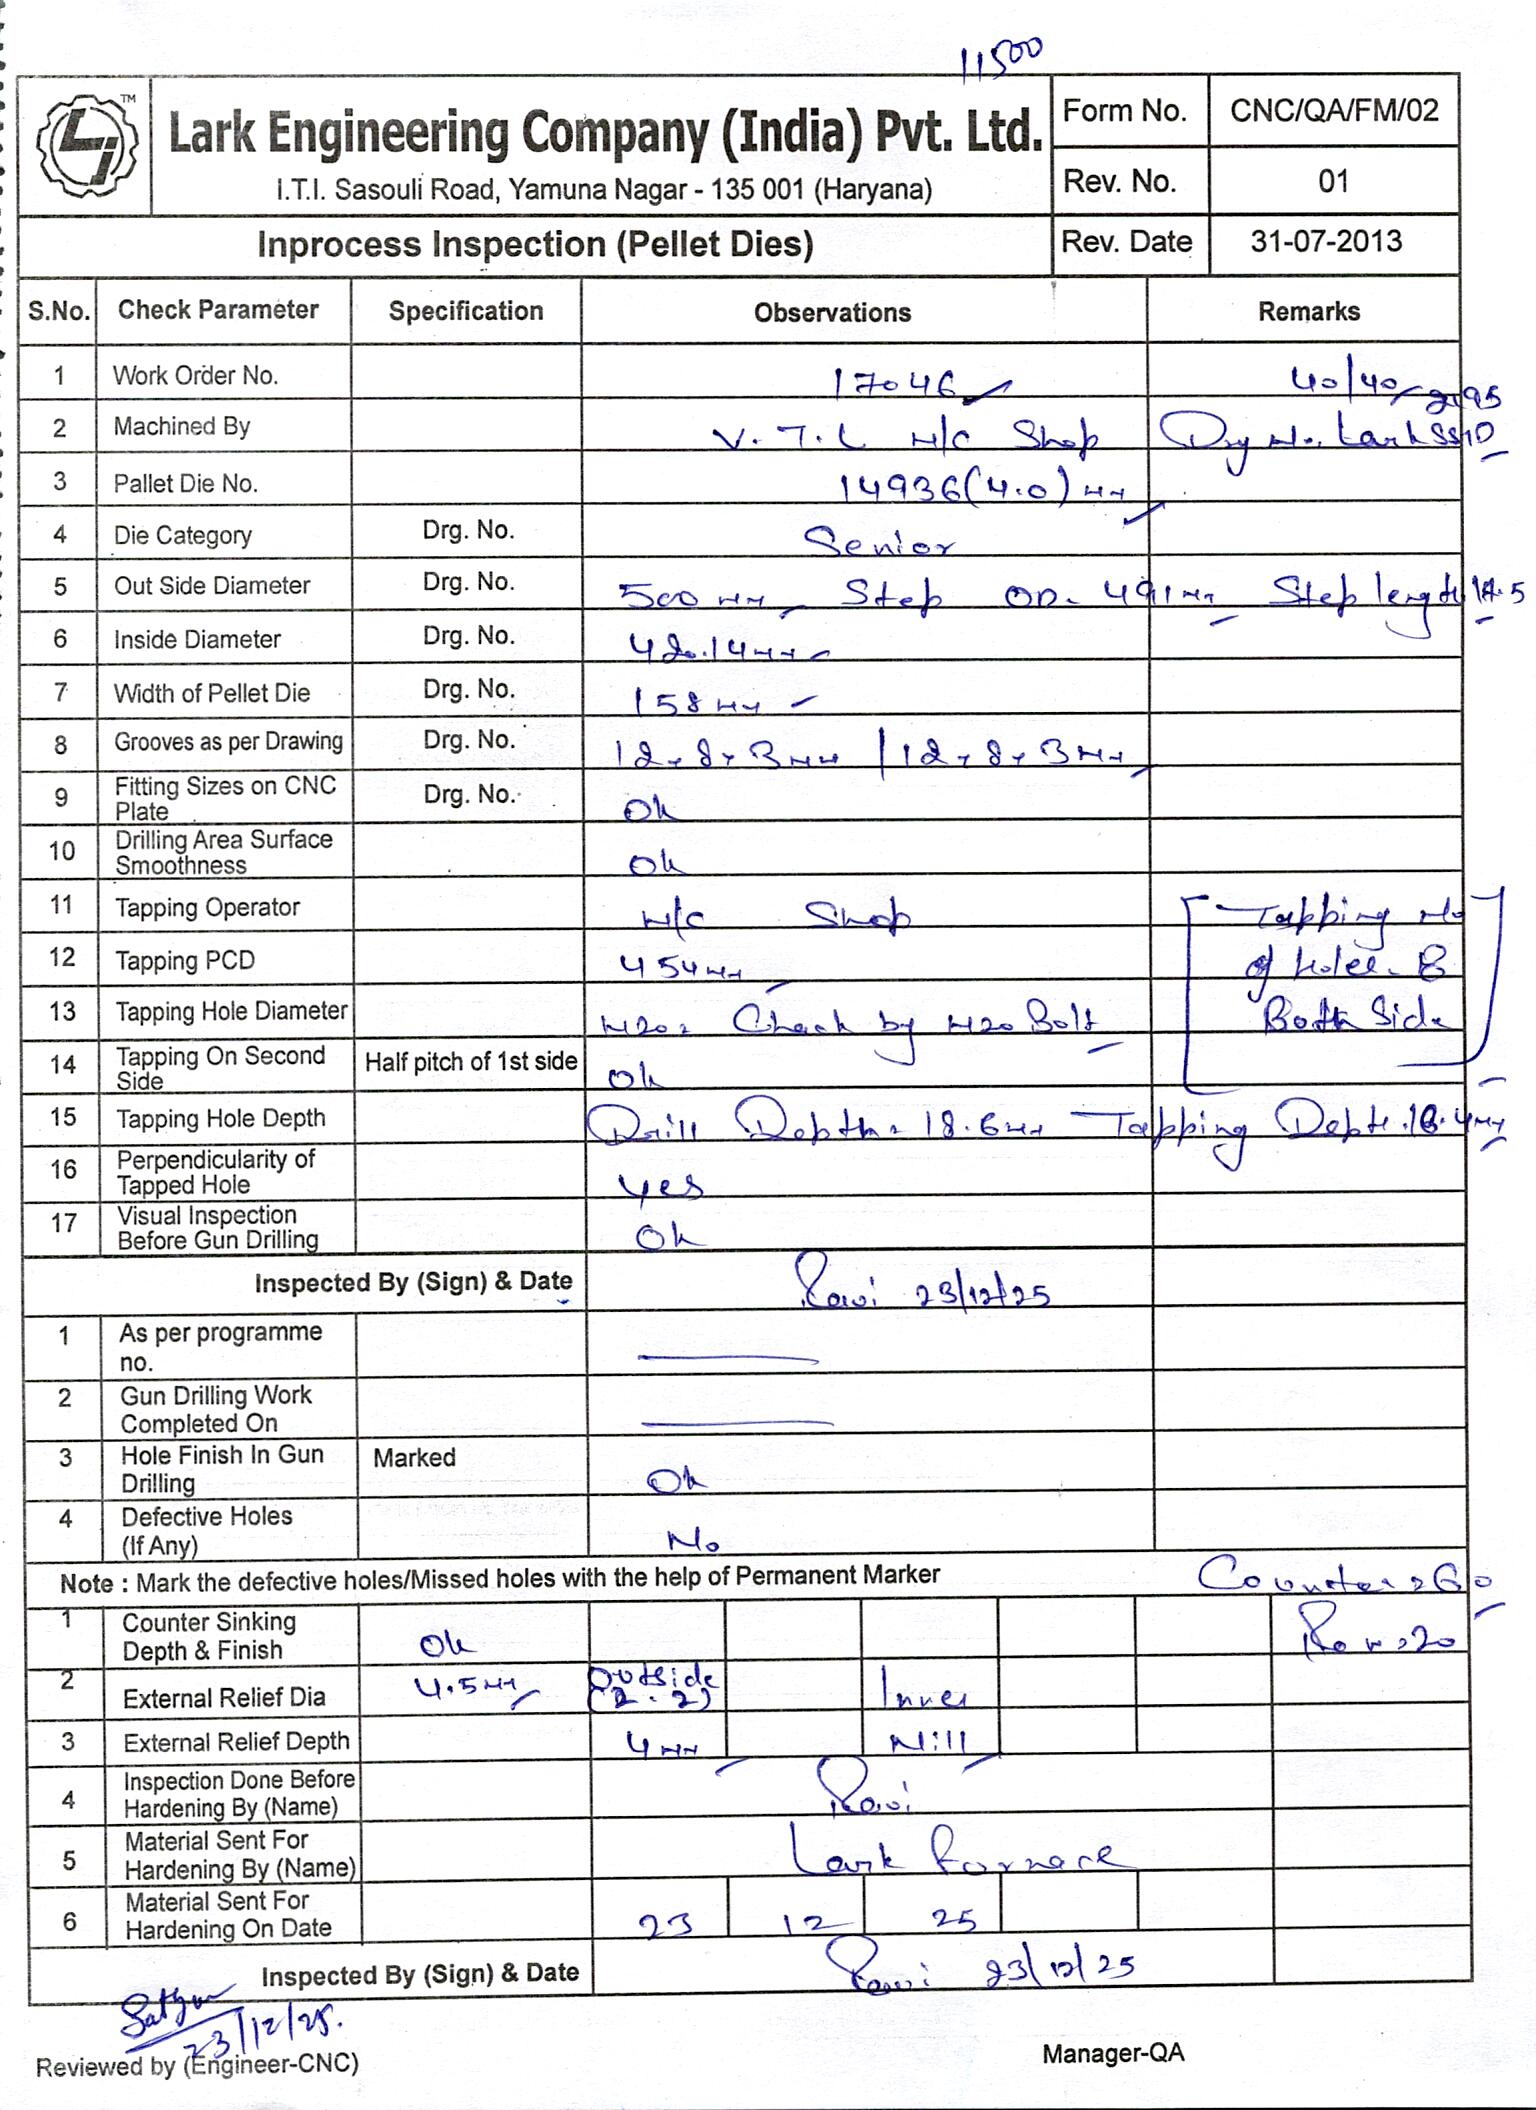 11500
TM
Lark Engineering Company (India) Pvt. Ltd.
I.T.I. Sasouli Road, Yamuna Nagar - 135 001 (Haryana)
Form No. CNC/QA/FM/02
Rev. No. 01
Inprocess Inspection (Pellet Dies) Rev. Date 31-07-2013
S.No. Check Parameter Specification Observations Remarks
1 Work Order No. 17046 40/40
2 Machined By V.T.L M/C Shop Drg No. Lark
3 Pallet Die No. 14936(4.0)mm
4 Die Category Drg. No. Senior
5 Out Side Diameter Drg. No. 500mm Step OD. 491mm Step length
6 Inside Diameter Drg. No. 420.14mm
7 Width of Pellet Die Drg. No. 158mm
8 Grooves as per Drawing Drg. No. 12x8x3mm / 12x8x3mm
9 Fitting Sizes on CNC Plate Drg. No. Ok
10 Drilling Area Surface Smoothness Ok
11 Tapping Operator M/C Shop Tapping No
12 Tapping PCD 454mm of holes - 8
13 Tapping Hole Diameter M20= Check by M20 Bolt Both Side
14 Tapping On Second Side Half pitch of 1st side Ok
15 Tapping Hole Depth Drill Depth = 18.6mm Tapping Depth
16 Perpendicularity of Tapped Hole Yes
17 Visual Inspection Before Gun Drilling Ok
Inspected By (Sign) & Date Ravi 23/12/25
1 As per programme no.
2 Gun Drilling Work Completed On
3 Hole Finish In Gun Drilling Marked Ok
4 Defective Holes (If Any) No
Note : Mark the defective holes/Missed holes with the help of Permanent Marker Counter = 60
1 Counter Sinking Depth & Finish Ok Row = 20
2 External Relief Dia 4.5mm Outside (2.2) Inner
3 External Relief Depth 4mm Nill
4 Inspection Done Before Hardening By (Name) Ravi
5 Material Sent For Hardening By (Name) Lark Furnace
6 Material Sent For Hardening On Date 23 12 25
Inspected By (Sign) & Date Ravi 23/12/25
23/12/25.
Reviewed by (Engineer-CNC) Manager-QA